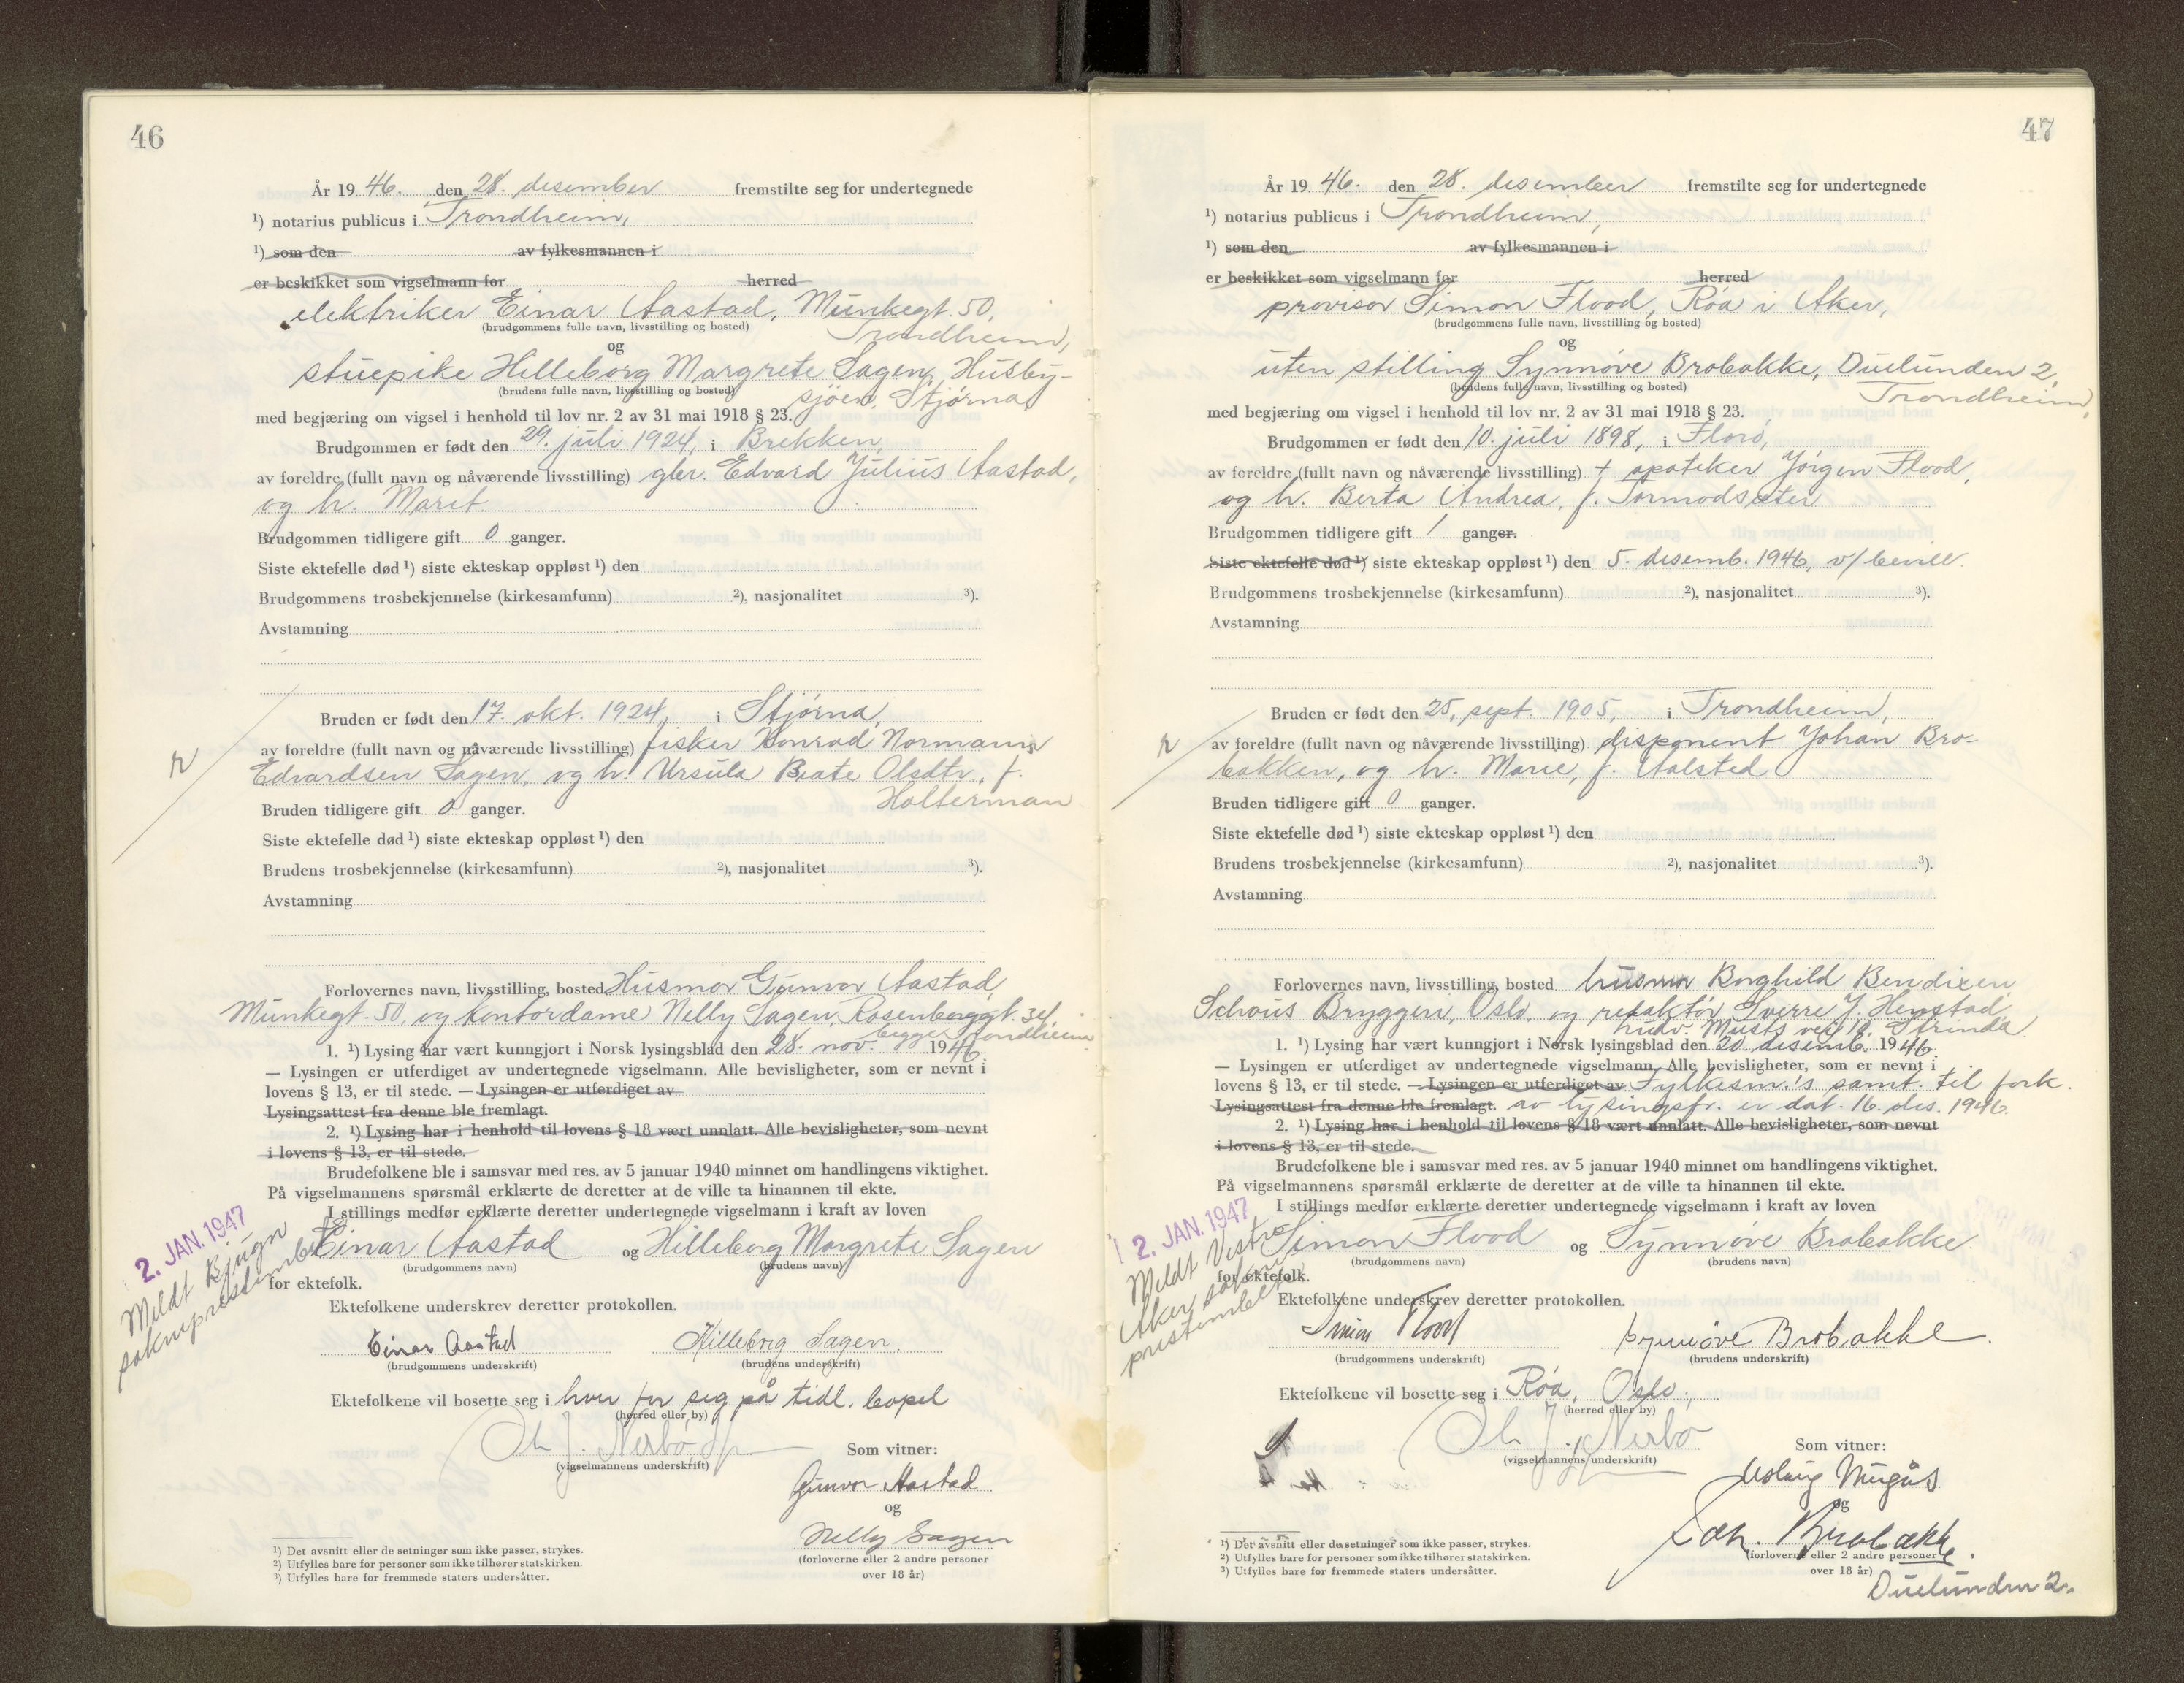 46
År 19 46. den 28. desember fremstilte seg for undertegnede
¹) notarius publicus i Trondheim,
¹) som den av fylkesmannen i
er beskikket som vigselmann for herred
elektriker Einar Aastad, Munkegt. 50,
(brudgommens fulle navn, livsstilling og bosted) Trondheim,
og
stuepike Hilleborg Margrete Sagen, Husby-
(brudens fulle navn, livsstilling og bosted) sjøen, Stjørna,
med begjæring om vigsel i henhold til lov nr. 2 av 31 mai 1918 § 23.
Brudgommen er født den 29. juli 1924, i Brekken,
av foreldre (fullt navn og nåværende livsstilling) gbr. Edvard Julius Aastad,
og h. Marit
Brudgommen tidligere gift 0 ganger.
Siste ektefelle død ¹) siste ekteskap oppløst ¹) den
Brudgommens trosbekjennelse (kirkesamfunn) ²), nasjonalitet ³).
Avstamning
Bruden er født den 17. okt. 1924, i Stjørna,
av foreldre (fullt navn og nåværende livsstilling) fisker Konrad Normann
Edvardsen Sagen, og h. Ursula Beate Olsdtr., f.
Holterman
Bruden tidligere gift 0 ganger.
Siste ektefelle død ¹) siste ekteskap oppløst ¹) den
Brudens trosbekjennelse (kirkesamfunn) ²), nasjonalitet ³).
Avstamning
Forlovernes navn, livsstilling, bosted Husmor Gunvor Aastad,
Munkegt. 50, og kontordame Nelly Sagen, Rosenborggt. 34,
begge Trondheim
1. ¹) Lysing har vært kunngjort i Norsk lysingsblad den 28. nov. 1946.
— Lysingen er utferdiget av undertegnede vigselmann. Alle bevisligheter, som er nevnt i
lovens § 13, er til stede. — Lysingen er utferdiget av
Lysingsattest fra denne ble fremlagt.
2. ¹) Lysing har i henhold til lovens § 18 vært unnlatt. Alle bevisligheter, som nevnt
i lovens § 13, er til stede.
Brudefolkene ble i samsvar med res. av 5 januar 1940 minnet om handlingens viktighet.
På vigselmannens spørsmål erklærte de deretter at de ville ta hinannen til ekte.
I stillings medfør erklærte deretter undertegnede vigselmann i kraft av loven
Einar Aastad og Hilleborg Margrete Sagen
(brudgommens navn) (brudens navn)
for ektefolk.
2. JAN. 1947
Meldt Bjugn
sokneprestembet
Ektefolkene underskrev deretter protokollen.
Einar Aastad Hilleborg Sagen.
(brudgommens underskrift) (brudens underskrift)
Ektefolkene vil bosette seg i hver for seg på tidl. bopel
(herred eller by)
Joh J. Nerbø
(vigselmannens underskrift)
Som vitner:
Gunvor Aastad
og
Nelly Sagen
(forloverne eller 2 andre personer
over 18 år)
¹) Det avsnitt eller de setninger som ikke passer, strykes.
²) Utfylles bare for personer som ikke tilhører statskirken.
³) Utfylles bare for fremmede staters undersåtter.
47
År 19 46. den 28. desember fremstilte seg for undertegnede
¹) notarius publicus i Trondheim,
¹) som den av fylkesmannen i
er beskikket som vigselmann for herred
provisor Simon Flood, Røa i Aker,
(brudgommens fulle navn, livsstilling og bosted)
og
uten stilling Synnøve Brobakke, Duelunden 2,
(brudens fulle navn, livsstilling og bosted) Trondheim,
med begjæring om vigsel i henhold til lov nr. 2 av 31 mai 1918 § 23.
Brudgommen er født den 10. juli 1898, i Florø,
av foreldre (fullt navn og nåværende livsstilling) † apoteker Jørgen Flood,
og h. Berta Andrea, f. Tormodsæter
Brudgommen tidligere gift 1 ganger.
Siste ektefelle død ¹) siste ekteskap oppløst ¹) den 5. desemb. 1946, v/bevill.
Brudgommens trosbekjennelse (kirkesamfunn) ²), nasjonalitet ³).
Avstamning
Bruden er født den 25. sept. 1905, i Trondheim,
av foreldre (fullt navn og nåværende livsstilling) disponent Johan Bro-
bakken, og h. Marie, f. Aalsted
Bruden tidligere gift 0 ganger.
Siste ektefelle død ¹) siste ekteskap oppløst ¹) den
Brudens trosbekjennelse (kirkesamfunn) ²), nasjonalitet ³).
Avstamning
Forlovernes navn, livsstilling, bosted husmor Borghild Bendixen,
Schous Bryggeri, Oslo, og redaktør Sverre J. Henstad,
Musts vei 19, Strinda
1. ¹) Lysing har vært kunngjort i Norsk lysingsblad den 20. desemb. 1946.
— Lysingen er utferdiget av undertegnede vigselmann. Alle bevisligheter, som er nevnt i
lovens § 13, er til stede. — Lysingen er utferdiget av Fylkesm.'s samt. til fork.
Lysingsattest fra denne ble fremlagt. av lysingsfr. er dat. 16. des. 1946.
2. ¹) Lysing har i henhold til lovens § 18 vært unnlatt. Alle bevisligheter, som nevnt
i lovens § 13, er til stede.
Brudefolkene ble i samsvar med res. av 5 januar 1940 minnet om handlingens viktighet.
På vigselmannens spørsmål erklærte de deretter at de ville ta hinannen til ekte.
I stillings medfør erklærte deretter undertegnede vigselmann i kraft av loven
Simon Flood og Synnøve Brobakke
(brudgommens navn) (brudens navn)
for ektefolk.
2. JAN. 1947
Meldt Vestre
Aker sokne
prestembet
Ektefolkene underskrev deretter protokollen.
Simon Flood Synnøve Brobakke.
(brudgommens underskrift) (brudens underskrift)
Ektefolkene vil bosette seg i Røa, Oslo,
(herred eller by)
Joh J. Nerbø
(vigselmannens underskrift)
Som vitner:
og
Joh. Brobakke.
(forloverne eller 2 andre personer
over 18 år)
Duelunden 2.
¹) Det avsnitt eller de setninger som ikke passer, strykes.
²) Utfylles bare for personer som ikke tilhører statskirken.
³) Utfylles bare for fremmede staters undersåtter.